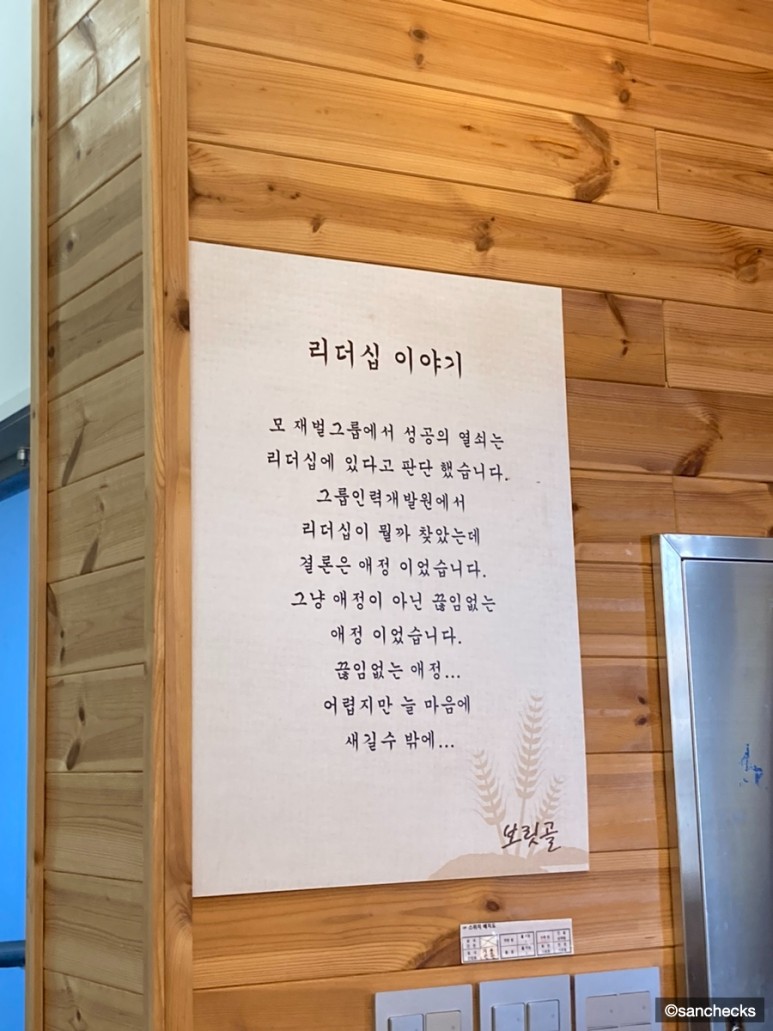 리더십 이야기
모 재벌그룹에서 성공의 열쇠는
리더십에 있다고 판단 했습니다.
그룹인력개발원에서
리더십이 뭘까 찾았는데
결론은 애정 이었습니다.
그냥 애정이 아닌 끊임없는
애정 이었습니다.
끊임없는 애정...
어렵지만 늘 마음에
새길수 밖에...
보릿골
©sanchecks